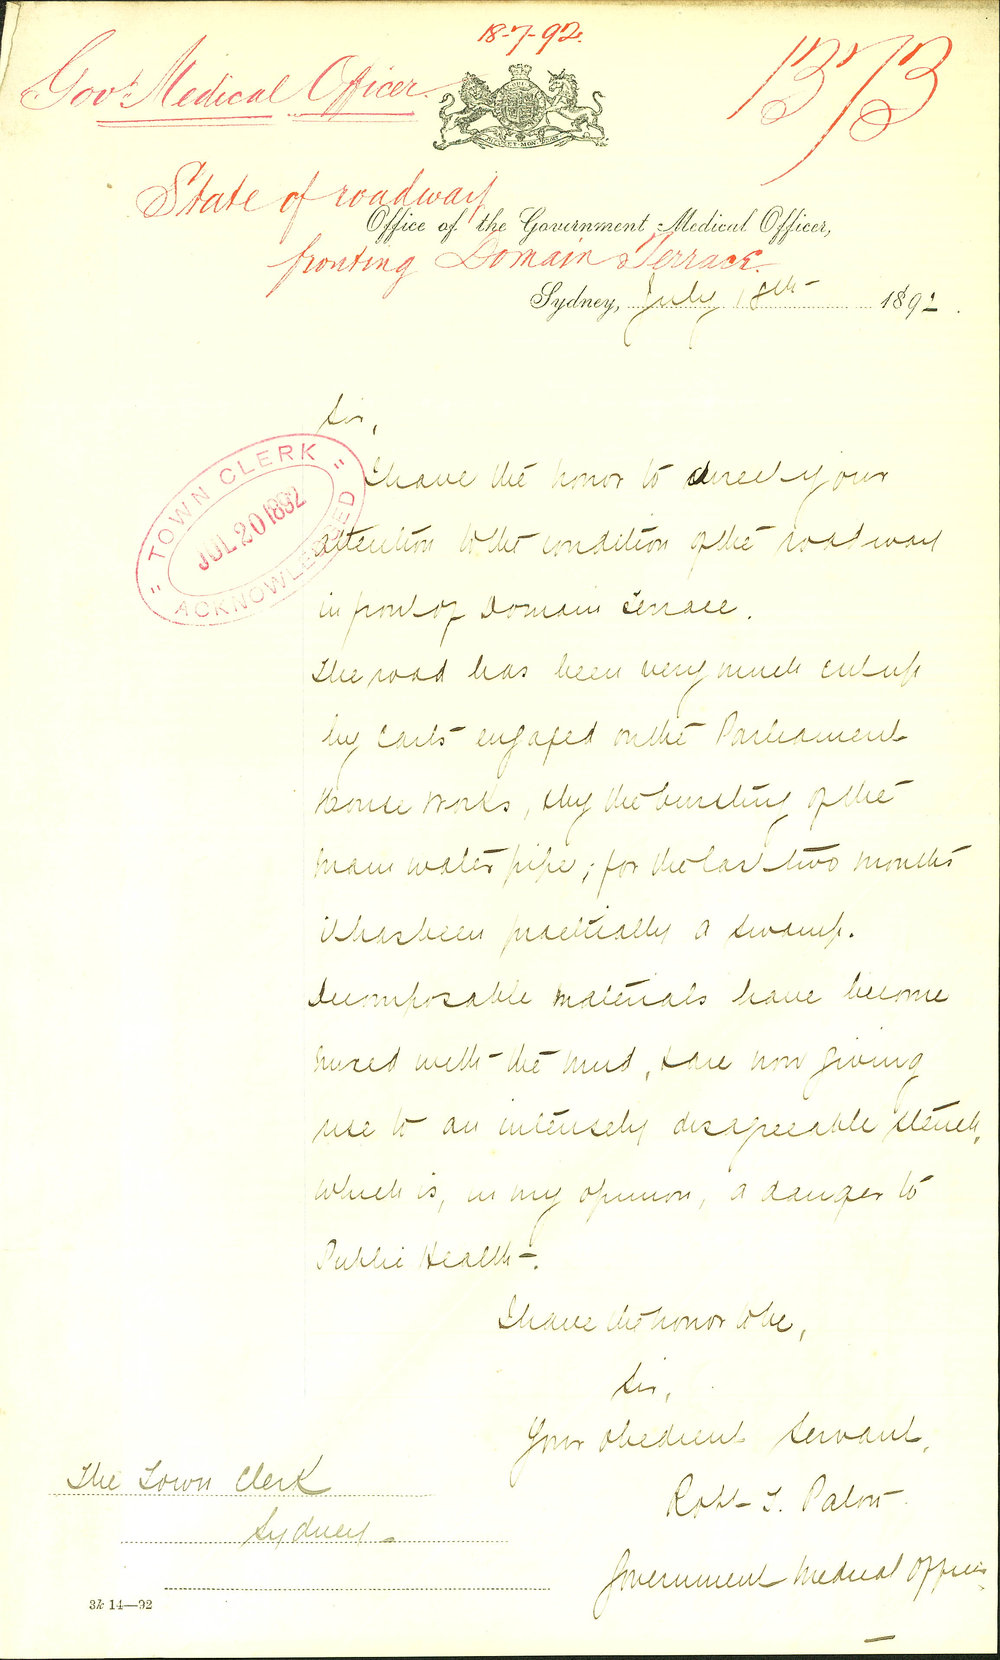 18-7-92.
1373
Govt Medical Officer.
State of roadway
Office of the Government Medical Officer,
fronting Domain Terrace.
Sydney, July 18th 1892.
Sir,
I have the honor to direct your
attention to the condition of the roadway
in front of Domain Terrace.
The road has been very much cut up
by carts engaged on the Parliament
House Works, & by the bursting of the
main water pipe; for the last two months
it has been practically a swamp.
Decomposable materials have become
mixed with the mud, & are now giving
rise to an intensely disagreeable stench,
which is, in my opinion, a danger to
Public Health.
I have the honor to be,
Sir,
Your obedient servant,
Robt T. Paton
Government Medical Officer
" TOWN CLERK "
JUL 20 1892
ACKNOWLEDGED
The Town Clerk
Sydney
3k 14—92